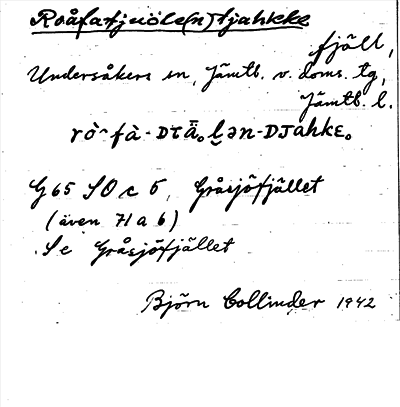 Roåfatjuöle(n)tjahkke
fjäll,
Undersåkers sn, Jämtl. v. doms. tg,
Jämtl. l.
G 65 SO c 5, Gråsjöfjället
(även 71 a 6)
Se Gråsjöfjället
Björn Collinder 1942